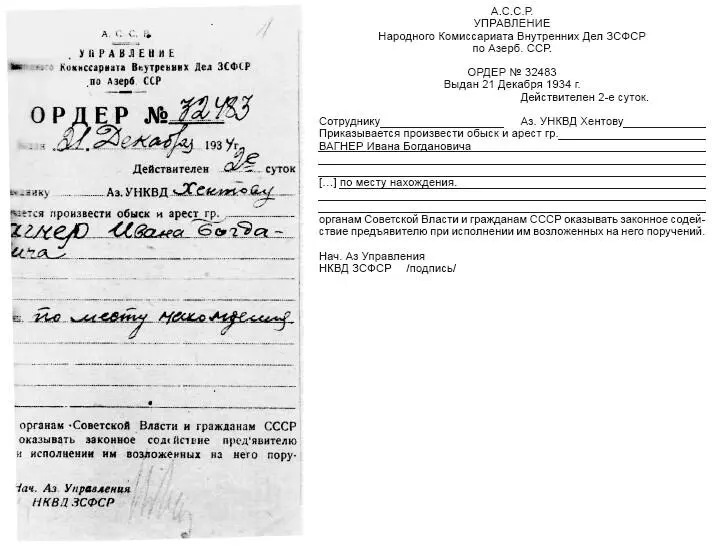 А. С. С. Р.
УПРАВЛЕНИЕ
Комиссариата Внутренних Дел ЗСФСР
по Азерб. ССР
1
ОРДЕР № 72483
21 Декабря 1934 г.
Действителен 2е суток
нику Аз. УНКВД Хентову
ается произвести обыск и арест гр.
агнер Ивана Богда-
вича
по месту нахождения
органам Советской Власти и гражданам СССР
оказывать законное содействие пред'явителю
и исполнении им возложенных на него пору-
Нач. Аз Управления
НКВД ЗСФСР
А.С.С.Р.
УПРАВЛЕНИЕ
Народного Комиссариата Внутренних Дел ЗСФСР
по Азерб. ССР.
ОРДЕР № 32483
Выдан 21 Декабря 1934 г.
Действителен 2-е суток.
Сотруднику Аз. УНКВД Хентову
Приказывается произвести обыск и арест гр.
ВАГНЕР Ивана Богдановича
[…] по месту нахождения.
органам Советской Власти и гражданам СССР оказывать законное содей-
ствие предъявителю при исполнении им возложенных на него поручений.
Нач. Аз Управления
НКВД ЗСФСР /подпись/